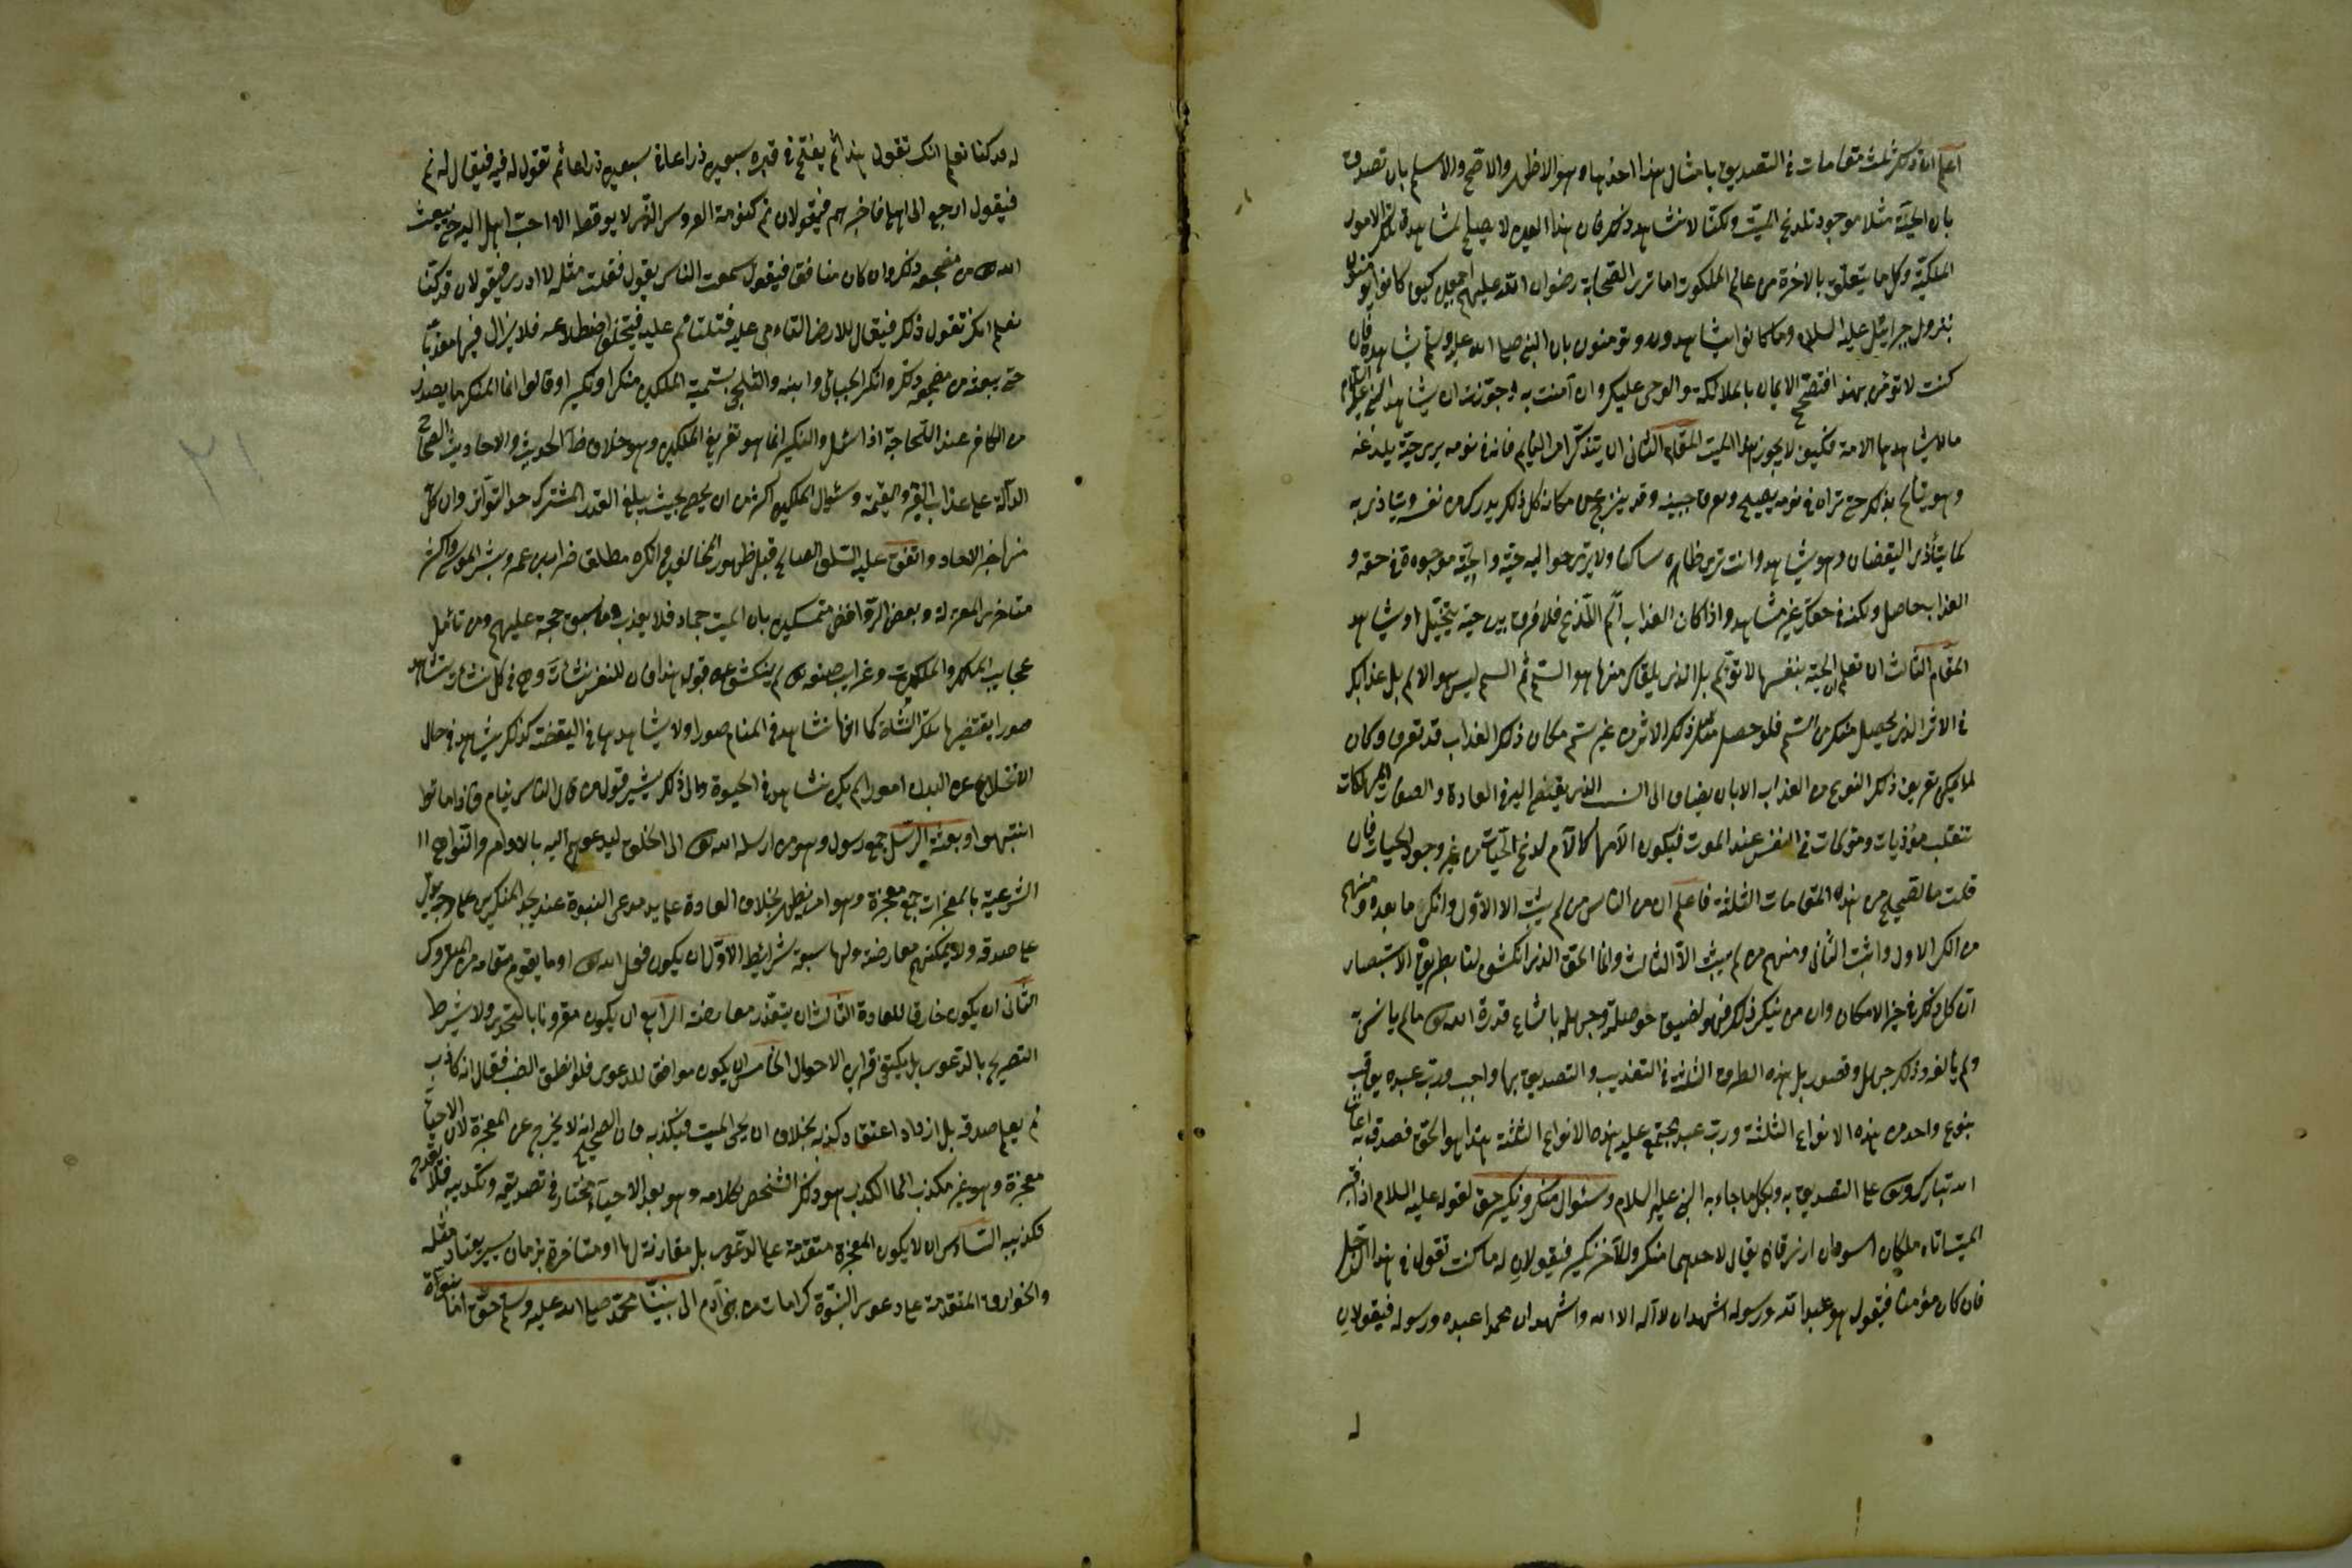 اعلم ان ذلك ثلث مقامات في التصديق بامثال هذا احدها وهو الاظهر والاصح والاسلم بان تصدق
بان الحية مثلا موجودة تلدغ الميت ولكنا لا نشاهد ذلك فان هذا العين لا يصلح لمشاهدة تلك الامور
الملكوتية وكل ما يتعلق بالاخرة من عالم الملكوت اما ترى الصحابة رضوان الله عليهم اجمعين كيف كانوا يؤمنون
بنزول جبرائيل عليه السلام وما كانوا يشاهدونه ويؤمنون بان النبي صلى الله عليه وسلم يشاهده فان
كنت لا تؤمن بهذا فتصحيح الايمان بالملائكة والوحي عليك وان آمنت به وجوزت ان يشاهد النبي عليه السلام
ما لا يشاهدها الامة فكيف لا يجوز هذا في الميت المقام الثاني ان يتذكر امر النايم فانه في نومه يرى حية يلدغه
وهو يتألم بذلك حتى تراه في نومه يصيح ويعرق جبينه وقد ينزعج من مكانه كل ذلك يدرك من نفسه ويتاذى به
كما يتأذى اليقضان وهو يشاهد وانت ترى ظاهره ساكنا ولا يرى حواليه حية والحية موجودة في حقه و
العذاب حاصل ولكنه في حقك غير مشاهد واذا كان العذاب ألم اللذع فلا فرق بين حية يتخيل او يشاهد
المقام الثالث ان تعلم ان الحية بنفسها لا تؤلم بل الذي يلقاك منها هو السم ثم السم ليس هو الالم بل عذابك
في الاثر الذي يحصل منك من السم فلو حصل مثل ذلك الاثر من غير سم فكان ذلك العذاب قد تعرف وكان
لا يمكن تعريف ذلك النوع من العذاب الا بان يضاف الى السبب الذي يفضي اليه في العادة والصفات المهلكات
تنقلب مؤذيات ومؤلمات في النفس عند الموت فيكون آلامها كآلام لدغ الحيات من غير وجود الحيات فان
قلت ما الصحيح من هذه المقامات الثلثة فاعلم ان من الناس من لم يثبت الا الاول وانكر ما بعده ومنهم
من انكر الاول واثبت الثاني ومنهم من لم يثبت الا الثالث وانما الحق الذي انكشف لنا بطريق الاستبصار
ان كل ذلك في حيز الامكان وان من ينكر ذلك فهو لضيق حوصلته وجهله باتساع قدرة الله تعالى ما لم يانس به
ولم يألفه وذلك جهل وقصور بل هذه الطرق الثلثة في التعذيب والتصديق بها واجب ورب عبد يعاقب
بنوع واحد من هذه الانواع الثلثة ورب عبد يجتمع عليه هذه الانواع الثلثة هذا هو الحق فصدق به اعاننا
الله تبارك وتعالى على التصديق به وبكل ما جاء به النبي عليه السلام وسئوال منكر ونكير حق لقوله عليه السلام اذا قبر
الميت اتاه ملكان اسودان ازرقان يقال لاحدهما منكر وللآخر نكير فيقولان له ما كنت تقول في هذا الرجل
فان كان مؤمنا فيقول هو عبد الله ورسوله اشهد ان لا آله الا الله واشهد ان محمدا عبده ورسوله فيقولان
له
له قد كنا نعلم انك تقول هذا ثم يفتح في قبره سبعين ذراعا في سبعين ذراعا ثم تقول له فيه فيقال له نم
فيقول ارجع الى اهلي فاخبرهم فيقولان نم كنومة العروس الذي لا يوقظه الا احب اهله اليه حتى يبعث
الله تعالى من مضجعه ذلك وان كان منافقا فيقول سمعت الناس يقول فقلت مثله لا ادري فيقولان قد كنا
نعلم انك تقول ذلك فيقال للارض التاءمي عليه فتلتئم عليه فيختلف اضطلاعه فلا يزال فيها معذبا
حتى يبعثه من مضجعه ذلك وانكر الجبائي وابنه والبلخي تسمية الملكين منكرا ونكيرا وقالوا انما المنكر ما يصدر
من الكافر عند التحاجة اذا سئل والنكير انما هو تقريع الملكين وهو خلاف ظاهر الحديث والاحاديث الصحاح
الدآلة على عذاب القبر ونعيمه وسئوال الملكين اكثر من ان يحصى بحيث يبلغ القدر المشترك حد التواتر وان كان كل
منها خبر الاحاد واتفق عليه السلف الصالح قبل ظهور المخالفين وانكره مطلق ضرار بن عمرو وبشر المريسي واكثر
متاخري المعتزلة وبعض الروافض متمسكين بان الميت جماد فلا يعذب وما سبق حجة عليهم ومن تأمل
عجايب الملك والملكوت وغرايب صنعه تعالى لم يستنكف عن قبول هذا فان للنفس نشأت وهي في كل نشأت تشاهد
صورا يقتضيها تلك النشاة كما انها تشاهد في المنام صورا ولا يشاهدها في اليقضة كذلك يشاهد في حال
الانخلاع عن البدن امورا لم يكن تشاهد في الحيوة والى ذلك يشير قول من قال الناس نيام فاذا ماتوا
انتبهوا وبعثة الرسل جمع رسول وهو من ارسله الله تعالى الى الخلق ليدعوهم اليه بالاوامر والنواهي
الشرعية بالمعجزات جمع معجزة وهو امر يظهر بخلاف العادة على يد مدعي النبوة عند تحدي المنكرين على وجه يدل
على صدقه ولا يمكنهم معارضته ولها سبعة شرائيط الاول ان يكون فعل الله تعالى او ما يقوم مقامه من التروك
الثاني ان يكون خارقا للعادة الثالث ان يتعذر معارضته الرابع ان يكون مقرونا بالتحدي ولا يشترط
التصريح بالدعوى بل يكتفي قراين الاحوال الخامس ان يكون موافقا للدعوى فلو نطق الضب فقال انه كاذب
لم يعلم صدقه بل ازداد اعتقاد كذبه بخلاف ان يحيى الميت فيكذبه فان الصحيح انه لا يخرج عن المعجزة لان الاحياء
معجزة وهو غير مكذب انما المكذب هو ذلك الشخص بكلامه وهو بعد الاحياء مختار في تصديقه وتكذيبه فلا يقدح
تكذيبه السادس ان لا يكون المعجزة متقدمة على الدعوى بل مقارنة لها او متاخرة بزمان يسير يعتاد مثله
والخوارق المتقدمة على دعوى النبوة كرامات من بني آدم الى نبينا محمد صلى الله عليه وسلم حق اما نبوة
٢١